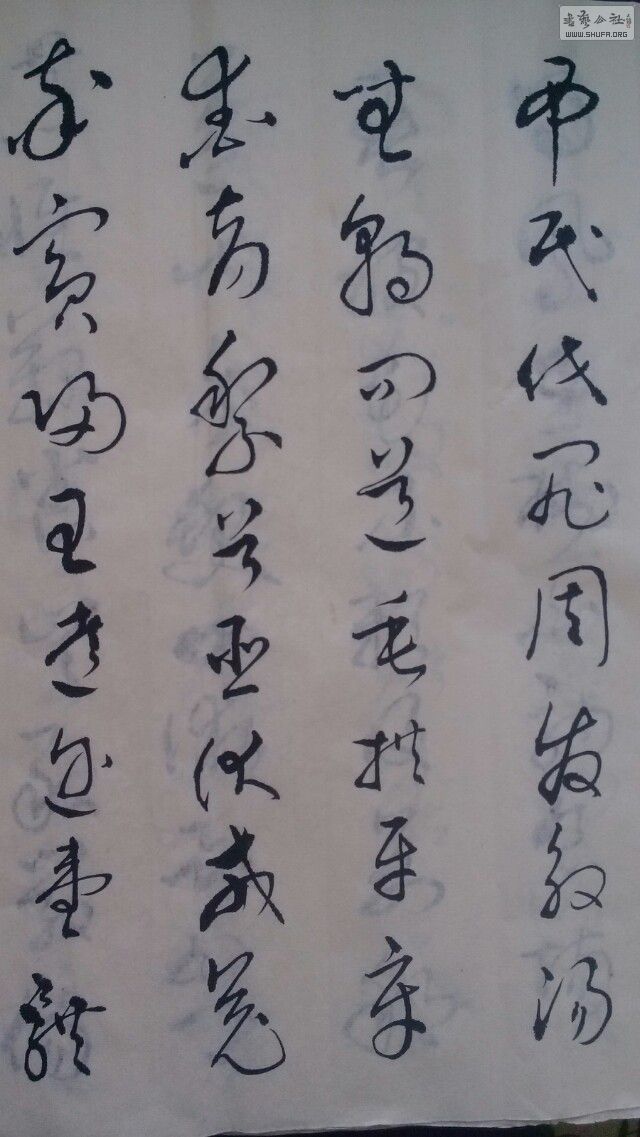 弔民伐罪周發殷湯
坐朝問道垂拱平章
愛育黎首臣伏戎羌
率賓歸王遐邇壹體
書藝公社
WWW.SHUFA.ORG